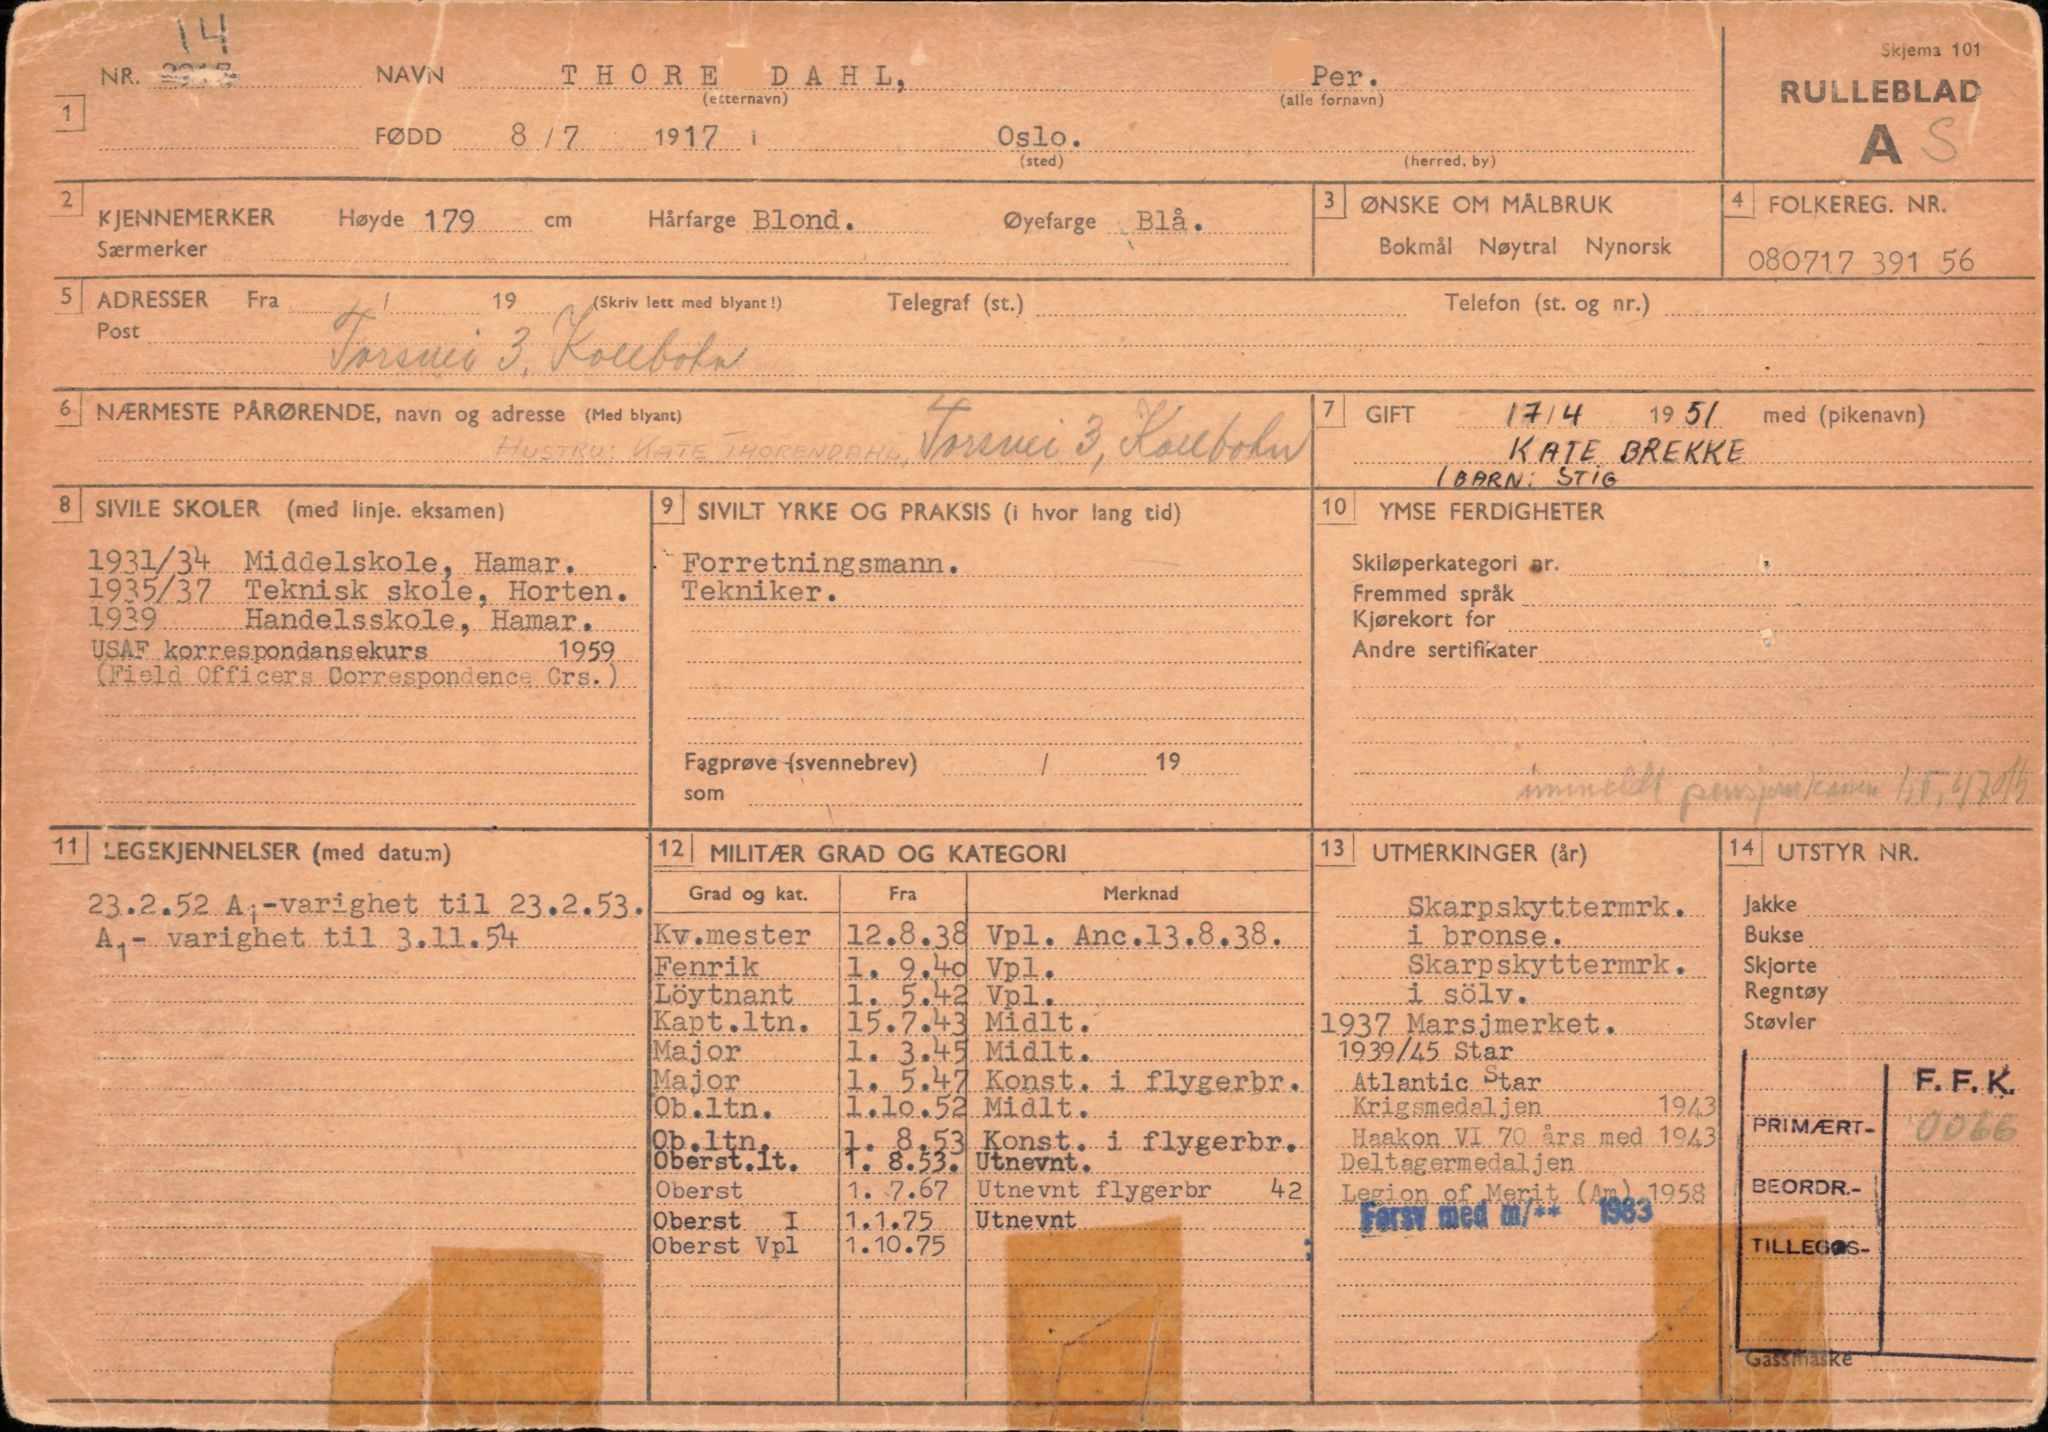 14
NR. NAVN THORE DAHL, Per. Skjema 101
(etternavn) (alle fornavn) RULLEBLAD
1
FØDD 8/7 1917 i Oslo. A S
(sted) (herred, by)
2 KJENNEMERKER Høyde 179 cm Hårfarge Blond. Øyefarge Blå.
Særmerker
3 ØNSKE OM MÅLBRUK
Bokmål Nøytral Nynorsk
4 FOLKEREG. NR.
080717 391 56
5 ADRESSER Fra / 19 (Skriv lett med blyant!) Telegraf (st.) Telefon (st. og nr.)
Post
Torsvei 3, Kolbotn
6 NÆRMESTE PÅRØRENDE, navn og adresse (Med blyant)
HUSTRU: KATE THORENDAHL, Torsvei 3, Kolbotn
7 GIFT 17/4 1951 med (pikenavn)
KATE BREKKE
1 BARN: STIG
8 SIVILE SKOLER (med linje. eksamen)
1931/34 Middelskole, Hamar.
1935/37 Teknisk skole, Horten.
1939 Handelsskole, Hamar.
USAF korrespondansekurs 1959
(Field Officers Correspondence Crs.)
9 SIVILT YRKE OG PRAKSIS (i hvor lang tid)
Forretningsmann.
Tekniker.
Fagprøve (svennebrev) / 19
som
10 YMSE FERDIGHETER
Skiløperkategori nr.
Fremmed språk
Kjørekort for
Andre sertifikater
innmeldt pensjonskassen
11 LEGEKJENNELSER (med datum)
23.2.52 A1-varighet til 23.2.53.
A1- varighet til 3.11.54
12 MILITÆR GRAD OG KATEGORI
Grad og kat. Fra Merknad
Kv.mester 12.8.38 Vpl. Anc.13.8.38.
Fenrik 1. 9.40 Vpl.
Löytnant 1. 5.42 Vpl.
Kapt.ltn. 15.7.43 Midlt.
Major 1. 3.45 Midlt.
Major 1. 5.47 Konst. i flygerbr.
Ob.ltn. 1.10.52 Midlt.
Ob.ltn. 1. 8.53 Konst. i flygerbr.
Oberst.lt. 1. 8.53. Utnevnt.
Oberst 1. 7.67 Utnevnt flygerbr 42
Oberst I 1.1.75 Utnevnt
Oberst Vpl 1.10.75
13 UTMERKINGER (år)
Skarpskyttermrk.
i bronse.
Skarpskyttermrk.
i sölv.
1937 Marsjmerket.
1939/45 Star
Atlantic Star
Krigsmedaljen 1943
Haakon VI 70 års med 1943
Deltagermedaljen
Legion of Merit (Am) 1958
Forsv med m/** 1983
14 UTSTYR NR.
Jakke
Bukse
Skjorte
Regntøy
Støvler
F. F. K.
PRIMÆRT- 0066
BEORDR.-
TILLEGGS-
Gassmaske